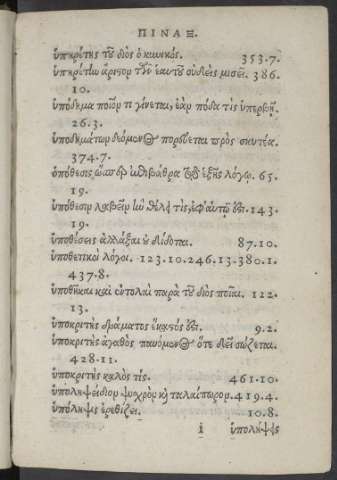 ΠΙΝΑΞ.
ὑπηρέτης τοῦ διὸς ὁ κυνικός. 353.7.
ὑπηρέτην ἄριστον τῶν ἑαυτοῦ οὐδεὶς μισεῖ. 386.
10.
ὑπόδημα ποῖόν τι γίνεται, ἐὰν πόδα τὶς ὑπερβῇ.
26.3.
ὑποδημάτων δεόμενος πορεύεται πρὸς σκυτέα.
374.7.
ὑπόθεσις, ὥσπερ ἐπιβάθρα τοῦ ἑξῆς λόγου. 65.
19.
ὑπόθεσιν λαβεῖν ἣν θέλῃ τὶς, ἐφ' αὑτῷ ἐστι. 143.
19.
ὑποθέσεις ἀλλάξαι οὐ δίδοται. 87.10.
ὑποθετικοὶ λόγοι. 123.10.246.13.380.1.
437.8.
ὑποθῆκαι καὶ ἐντολαὶ παρὰ τοῦ διὸς ποῖαι. 122.
13.
ὑποκριτὴς δράματος ἕκαστός ἐστι. 9.2.
ὑποκριτὴς ἀγαθὸς παυόμενος ὅτε δεῖ σώζεται.
428.11.
ὑποκριτὴς καλὸς τίς. 461.10.
ὑποληψείδιον ψυχρὸν καὶ ταλαίπωρον. 419.4.
ὑπόληψις ἐρεθίζει. 10.8.
i ὑπολήψῃς